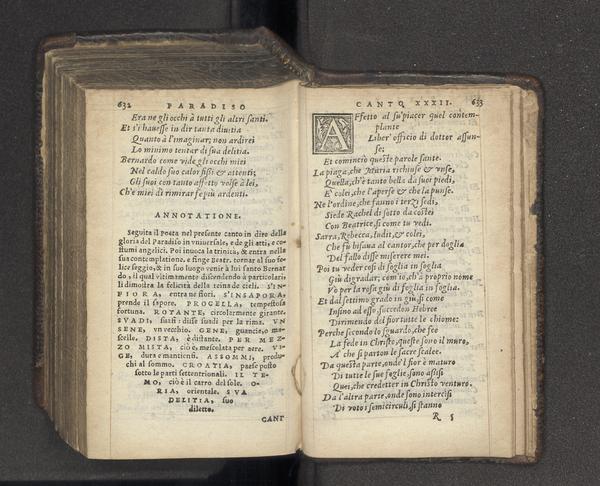 632 PARADISO
Era ne gli occhi à tutti gli altri santi.
Et s'i hauesse in dir tanta diuitia
Quanto à l'imaginar; non ardirei
Lo minimo tentar di sua delitia.
Bernardo come vide gli occhi miei
Nel caldo suo calor fissi & attenti;
Gli suoi con tanto affetto volse à lei,
Ch'e miei di rimirar fe piu ardenti.
ANNOTATIONE.
Seguita il Poeta nel presente canto in dire della
gloria del Paradiso in vniuersale, e de gli atti, e co
stumi angelici. Poi inuoca la trinità, & entra nella
sua contemplatione, e finge Beatr. tornar al suo fe
lice seggio, & in suo luogo venir à lui santo Bernar
do, il qual vltimamente discendendo à particolari
li dimostra la felicità della reina de cieli. S'IN-
FIORA, entra ne fiori. S'INSAPORA,
prende il sapore. PROCELLA, tempestosa
fortuna. ROTANTE, circolarmente girante.
SVADI, suasi: disse suadi per la rima. VN
SENE, vn vecchio. GENE, guancie, o ma-
scelle. DISTA, è distante. PER MEZ-
ZO MISTA, ciò è, mescolata per otte. VI-
GE, dura e mantiensi. ASSOMMI, produ-
chi al sommo. CROATIA, paese posto
sotto le parti settentrionali. IL TE-
MO, ciò è il carro del sole. O-
RIA, orientale. SVA
DELITIA, suo
diletto.
CANT
CANTO XXXII. 633
Affetto al su' piacer quel contem-
plante
Liber' officio di dottor assun-
se;
Et cominciò queste parole sante.
La piaga, che Maria richiuse & vnse,
Quella, ch'è tanto bella da suoi piedi,
E' colei, che l'aperse & che la punse.
Ne l'ordine, che fanno i terzi sedi,
Siede Rachel di sotto da costei
Con Beatrice, si come tu vedi.
Sarra, Rebecca, Iudit, & colei,
Che fù bisaua al cantor, che per doglia
Del fallo disse miserere mei.
Poi tu veder così di foglia in soglia
Giù digradar; com'io, ch'a proprio nome
Vo per la rosa giù di foglia in foglia.
Et dal settimo grado in giu, si come
Insino ad esso, succedon Hebree
Dirimendo del fior tutte le chiome:
Perche secondo lo sguardo, che feo
La fede in Christo, queste sono il muro,
A che si parton le sacre scalee.
Da questa parte, onde'l fior è maturo
Di tutte le sue foglie, sono assisi
Quei, che credetter in Christo venturo.
Da l'altra parte, onde sono intercisi
Di voto i semicirculi, si stanno
R 5